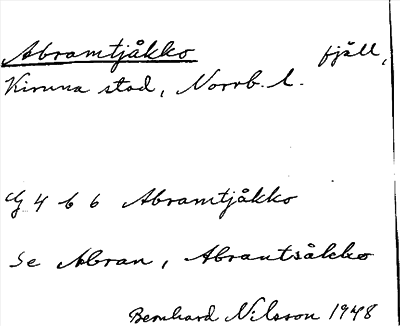 Abramtjåkko fjäll,
Kiruna stad, Norrb. l.
G 4 6 6 Abramtjåkko
Se Abran, Abrantsåkko
Bernhard Nilsson 1948